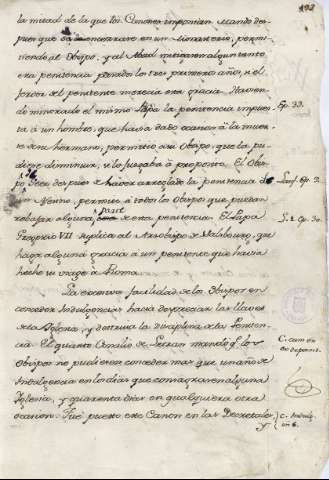 la mitad de la que los Canones imponian quando des-
pues que se encerrase en un Monasterio, permi-
tiendo al Obispo, y al Abad mitigar algun tanto
esta penitencia pasados los tres primeros años, si el
fervor del penitente merecia esta gracia. Havien-
do minorado el mismo Papa la penitencia impues-
ta á un hombre, que havia dado ocasion á la muer-
te de su hermano, permitió á su Obispo, que la pu-
diese disminuir, si lo juzgaba á proposito. El Obis-
po despues de haver arreglado la penitencia de
un Monge, permite á todos los Obispos que puedan
rebajar alguna parte de esta penitencia. El Papa
Gregorio VII suplica al Arzobispo de Salsbourg, que
haga alguna gracia á un penitente que havia
hecho su viage á Roma.
La excesiva facilidad de los Obispos en
conceder Indulgencias hacia despreciar las llaves
de la Iglesia, y destruia la disciplina de la Peniten-
cia. El quarto Concilio de Letran mandó q.e los
Obispos no pudiesen conceder mas que un año de
Indulgencia en los dias que consagrasen alguna
Iglesia, y quarenta dias en qualquiera otra
ocasion. Fue puesto este Canon en las Decretales,
y
Ep. 33.
Ep. 2.
Ep. 30.
C. cum ex
eo de poenit.